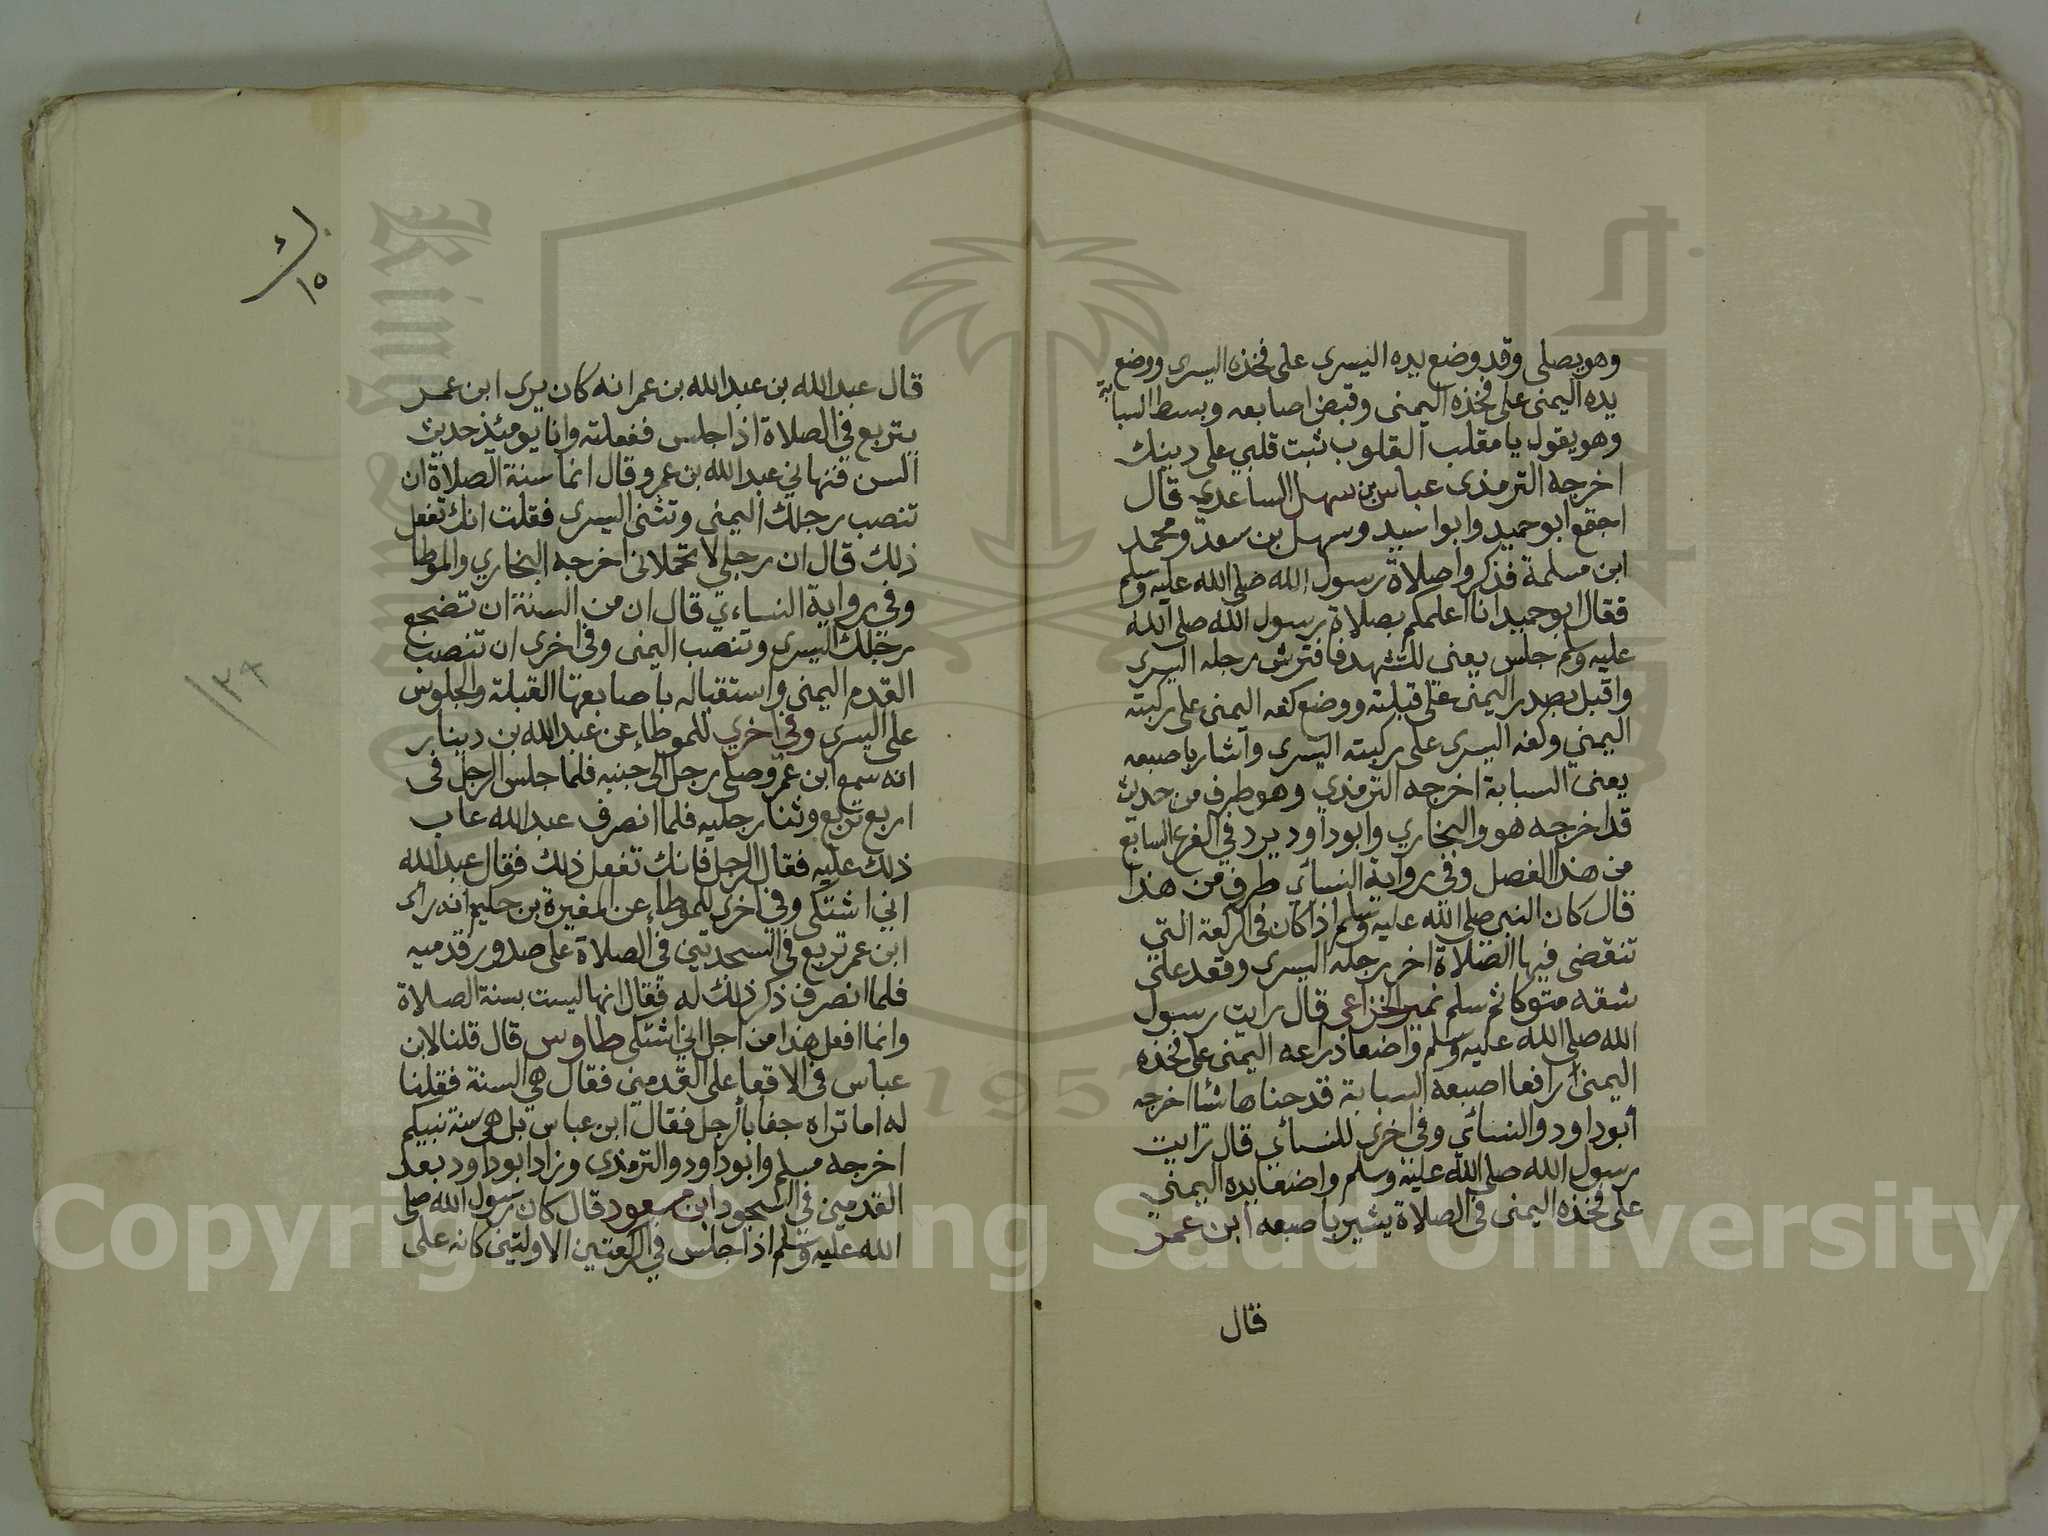 وهو يصلي وقد وضع يده اليسرى على فخذه اليسرى ووضع
يده اليمنى على فخذه اليمنى وقبض اصابعه وبسط السبابة
وهو يقول يا مقلب القلوب ثبت قلبي على دينك
اخرجه الترمذى عباس بن سهل الساعدي قال
اجتمع ابو حميد وابو اسيد وسهل بن سعد ومحمد
ابن مسلمة فذكروا صلاة رسول الله صلى الله عليه وسلم
فقال ابو حميد انا اعلمكم بصلاة رسول الله صلى الله
عليه وسلم جلس يعنى للتشهد فافترش رجله اليسرى
واقبل بصدر اليمنى على قبلته ووضع كفه اليمنى على ركبته
اليمني وكفه اليسرى على ركبته اليسرى واشار باصبعه
يعنى السبابة اخرجه الترمذي وهو طرف من حديث
قد اخرجه هو والبخاري وابو داود يرد في الفرع السابع
من هذا الفصل وفي رواية النسائي طرف من هذا
قال كان النبي صلى الله عليه وسلم اذا كان فى الركعة التي
تنقضى فيها الصلاة اخر رجله اليسرى وقعد على
شقه متوكا ثم سلم نمير الخزاعى قال رايت رسول
الله صلى الله عليه وسلم واضعا ذراعه اليمنى على فخذه
اليمنى رافعا اصبعه السبابة قد حناها شئا اخرجه
أبو داود والنسائي وفى اخرى للنسائي قال رايت
رسول الله صلى الله عليه وسلم واضعا يده اليمني
على فخذه اليمنى فى الصلاة يشير باصبعه ابن عمر
قال
١٥
قال عبد الله بن عبد الله بن عمر انه كان يرى ابن عمر
يتربع في الصلاة اذا جلس ففعلته وانا يومئذ حديث
السن فنهاني عبد الله بن عمر وقال انما سنة الصلاة ان
تنصب رجلك اليمنى وتثنى اليسرى فقلت انك تفعل
ذلك قال ان رجلي لا تحملانى اخرجه البخاري والموطا
وفي رواية النساءي قال ان من السنة ان تضجع
رجلك اليسرى وتنصب اليمنى وفى اخرى ان تنصب
القدم اليمنى واستقباله باصابعها القبلة والجلوس
على اليسرى وفي اخري للموطاء عن عبد الله بن دينار
انه سمع ابن عمر وصلى رجل الى جنبه فلما جلس الرجل فى
اربع تربع وثنا رجليه فلما انصرف عبد الله عاب
ذلك عليه فقال الرجل فانك تفعل ذلك فقال عبد الله
اني اشتكى وفي اخرى للموطاء عن المغيرة بن حكيم انه راى
ابن عمر تربع فى السجدتين فى الصلاة على صدور قدميه
فلما انصرف ذكر ذلك له فقال انها ليست بسنة الصلاة
وانما افعل هذا من اجل اني اشتكى طاوس قال قلنا لابن
عباس فى الاقعا على القدمين فقال هي السنة فقلنا
له اما تراه جفا بالرجل فقال ابن عباس بل هى سنة نبيكم
اخرجه مسلم وابو داود والترمذى وزاد ابو داود بعد
القدمين في السجود ابن مسعود قال كان رسول الله صلى
الله عليه وسلم اذا جلس في الركعتين الاولتين كانه على
Copyright © King Saud University
1957